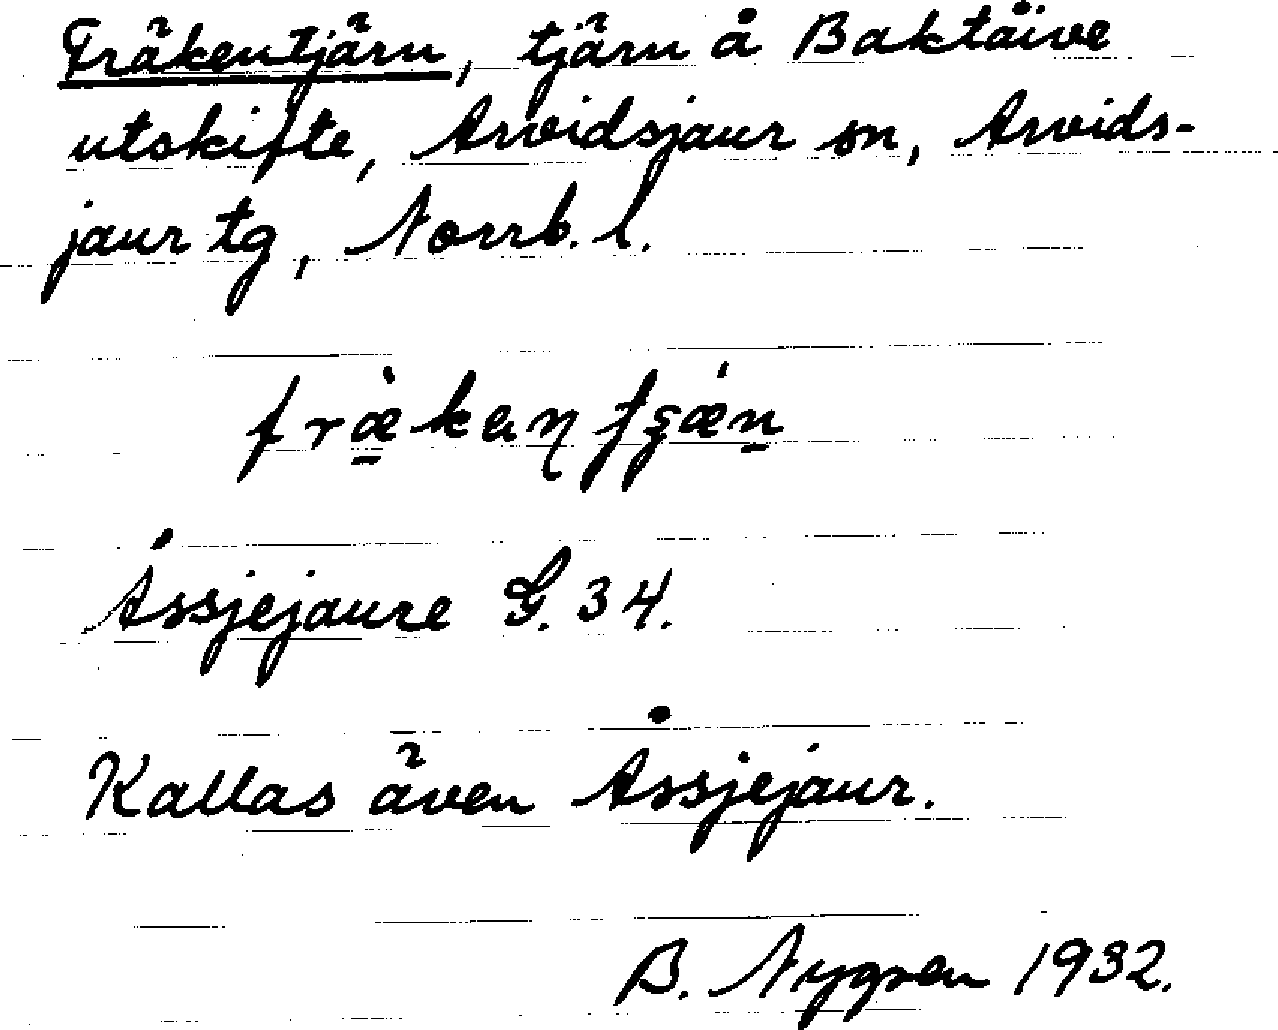 Fräkentjärn, tjärn å Baktåive
utskifte, Arvidsjaur sn, Arvids-
jaur tg, Norrb. l.
Åssjejaure G. 34.
Kallas även Åssjejaur.
B. Nygren 1932.